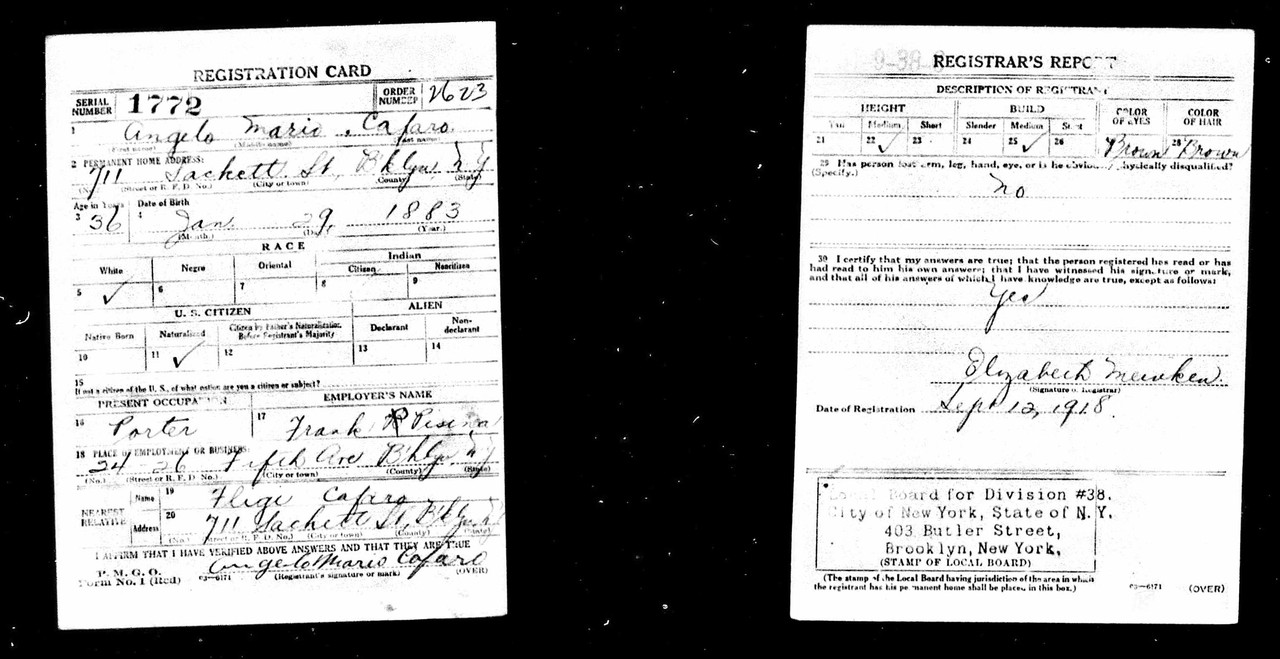 REGISTRATION CARD
SERIAL NUMBER 1772 ORDER NUMBER 2623
1 Angelo Mario Cafaro
(First name) (Middle name) (Last name)
2 PERMANENT HOME ADDRESS:
711 Sackett St. Bklyn N Y
(No.) (Street or R. F. D. No.) (City or town) (County) (State)
Age in Years Date of Birth
3 36 4 Jan. 29, 1883
(Month.) (Day.) (Year.)
RACE
White Negro Oriental Indian
Citizen Noncitizen
5 ✓ 6 7 8 9
U. S. CITIZEN ALIEN
Native Born Naturalized Citizen by Father's Naturalization Before Registrant's Majority Declarant Non-declarant
10 11 ✓ 12 13 14
15
If not a citizen of the U. S., of what nation are you a citizen or subject?
PRESENT OCCUPATION EMPLOYER'S NAME
16 Porter 17 Frank
18 PLACE OF EMPLOYMENT OR BUSINESS:
24 26 Fifth Ave Bklyn N Y
(No.) (Street or R. F. D. No.) (City or town) (County) (State)
NEAREST RELATIVE Name 19 Cafaro
Address 20 711 Sackett St, Bklyn N Y
(No.) (Street or R. F. D. No.) (City or town) (County) (State)
I AFFIRM THAT I HAVE VERIFIED ABOVE ANSWERS AND THAT THEY ARE TRUE
P. M. G. O.
Form No. 1 (Red) 03—6171 Angelo Mario Cafaro
(Registrant's signature or mark) (OVER)
REGISTRAR'S REPORT
DESCRIPTION OF REGISTRANT
HEIGHT BUILD COLOR OF EYES COLOR OF HAIR
Tall Medium Short Slender Medium Stout
21 22 ✓ 23 24 25 ✓ 26 Brown 28 Brown
29 Has person lost arm, leg, hand, eye, or is he obviously physically disqualified?
(Specify.)
No
30 I certify that my answers are true; that the person registered has read or has
had read to him his own answers; that I have witnessed his signature or mark,
and that all of his answers of which I have knowledge are true, except as follows:
Yes
Elizabeth
(Signature of Registrar)
Date of Registration Sept 12, 1918.
Local Board for Division #38.
City of New York, State of N.Y.
403 Butler Street,
Brooklyn, New York.
(STAMP OF LOCAL BOARD)
(The stamp of the Local Board having jurisdiction of the area in which
the registrant has his permanent home shall be placed in this box.)
03—6171 (OVER)